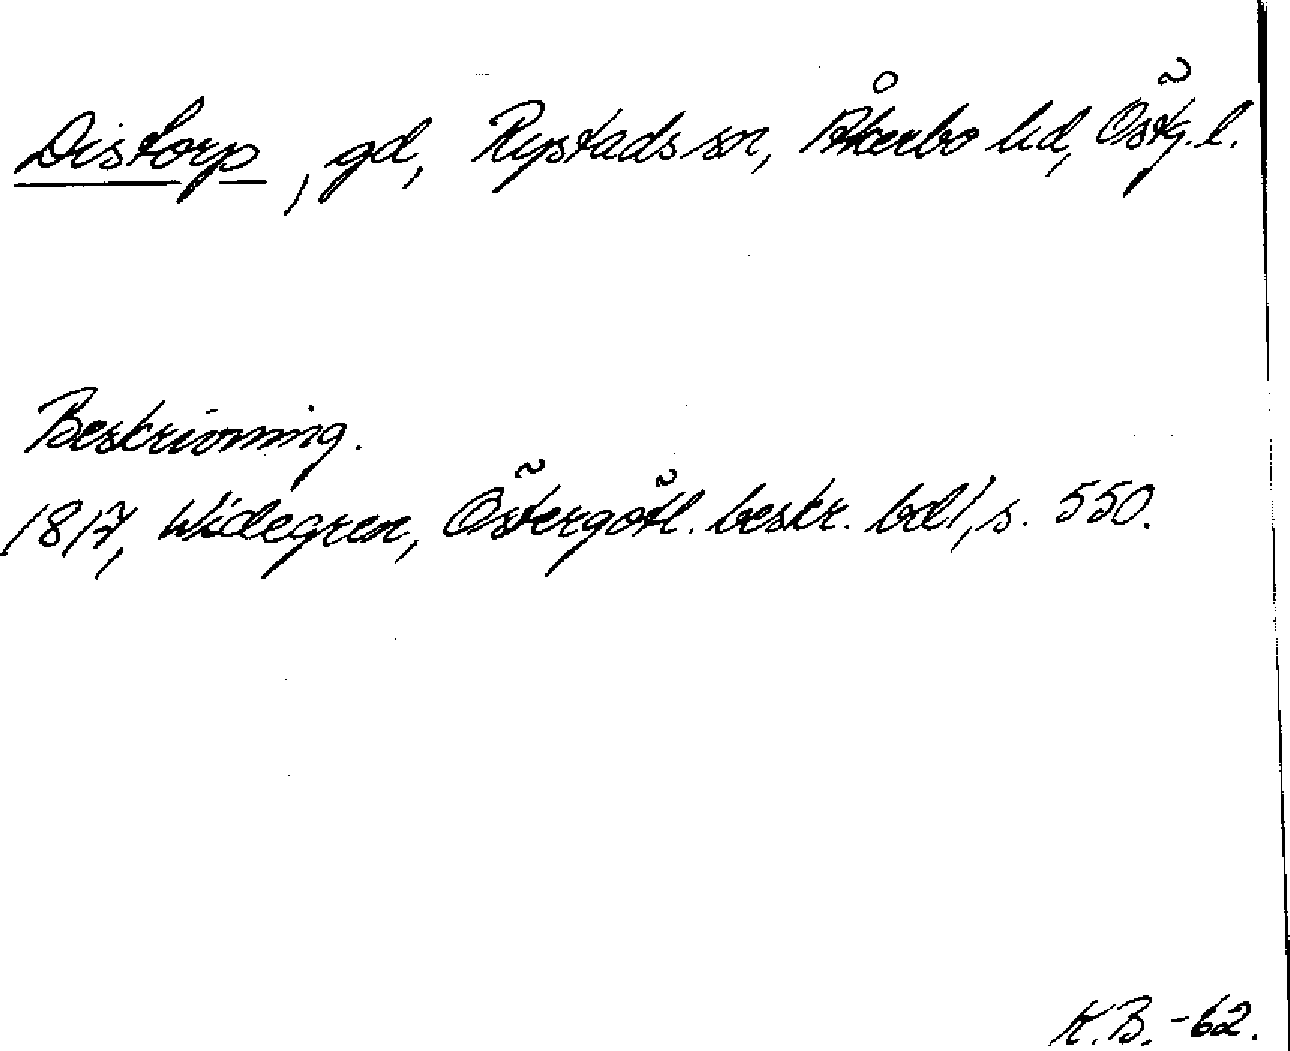 Distorp, gd, Rystads sn, Åkerbo hd, Östg. l.
Beskrivning.
1817, Widegren, Östergötl. beskr. bd 1, s. 550.
K.B. -62.